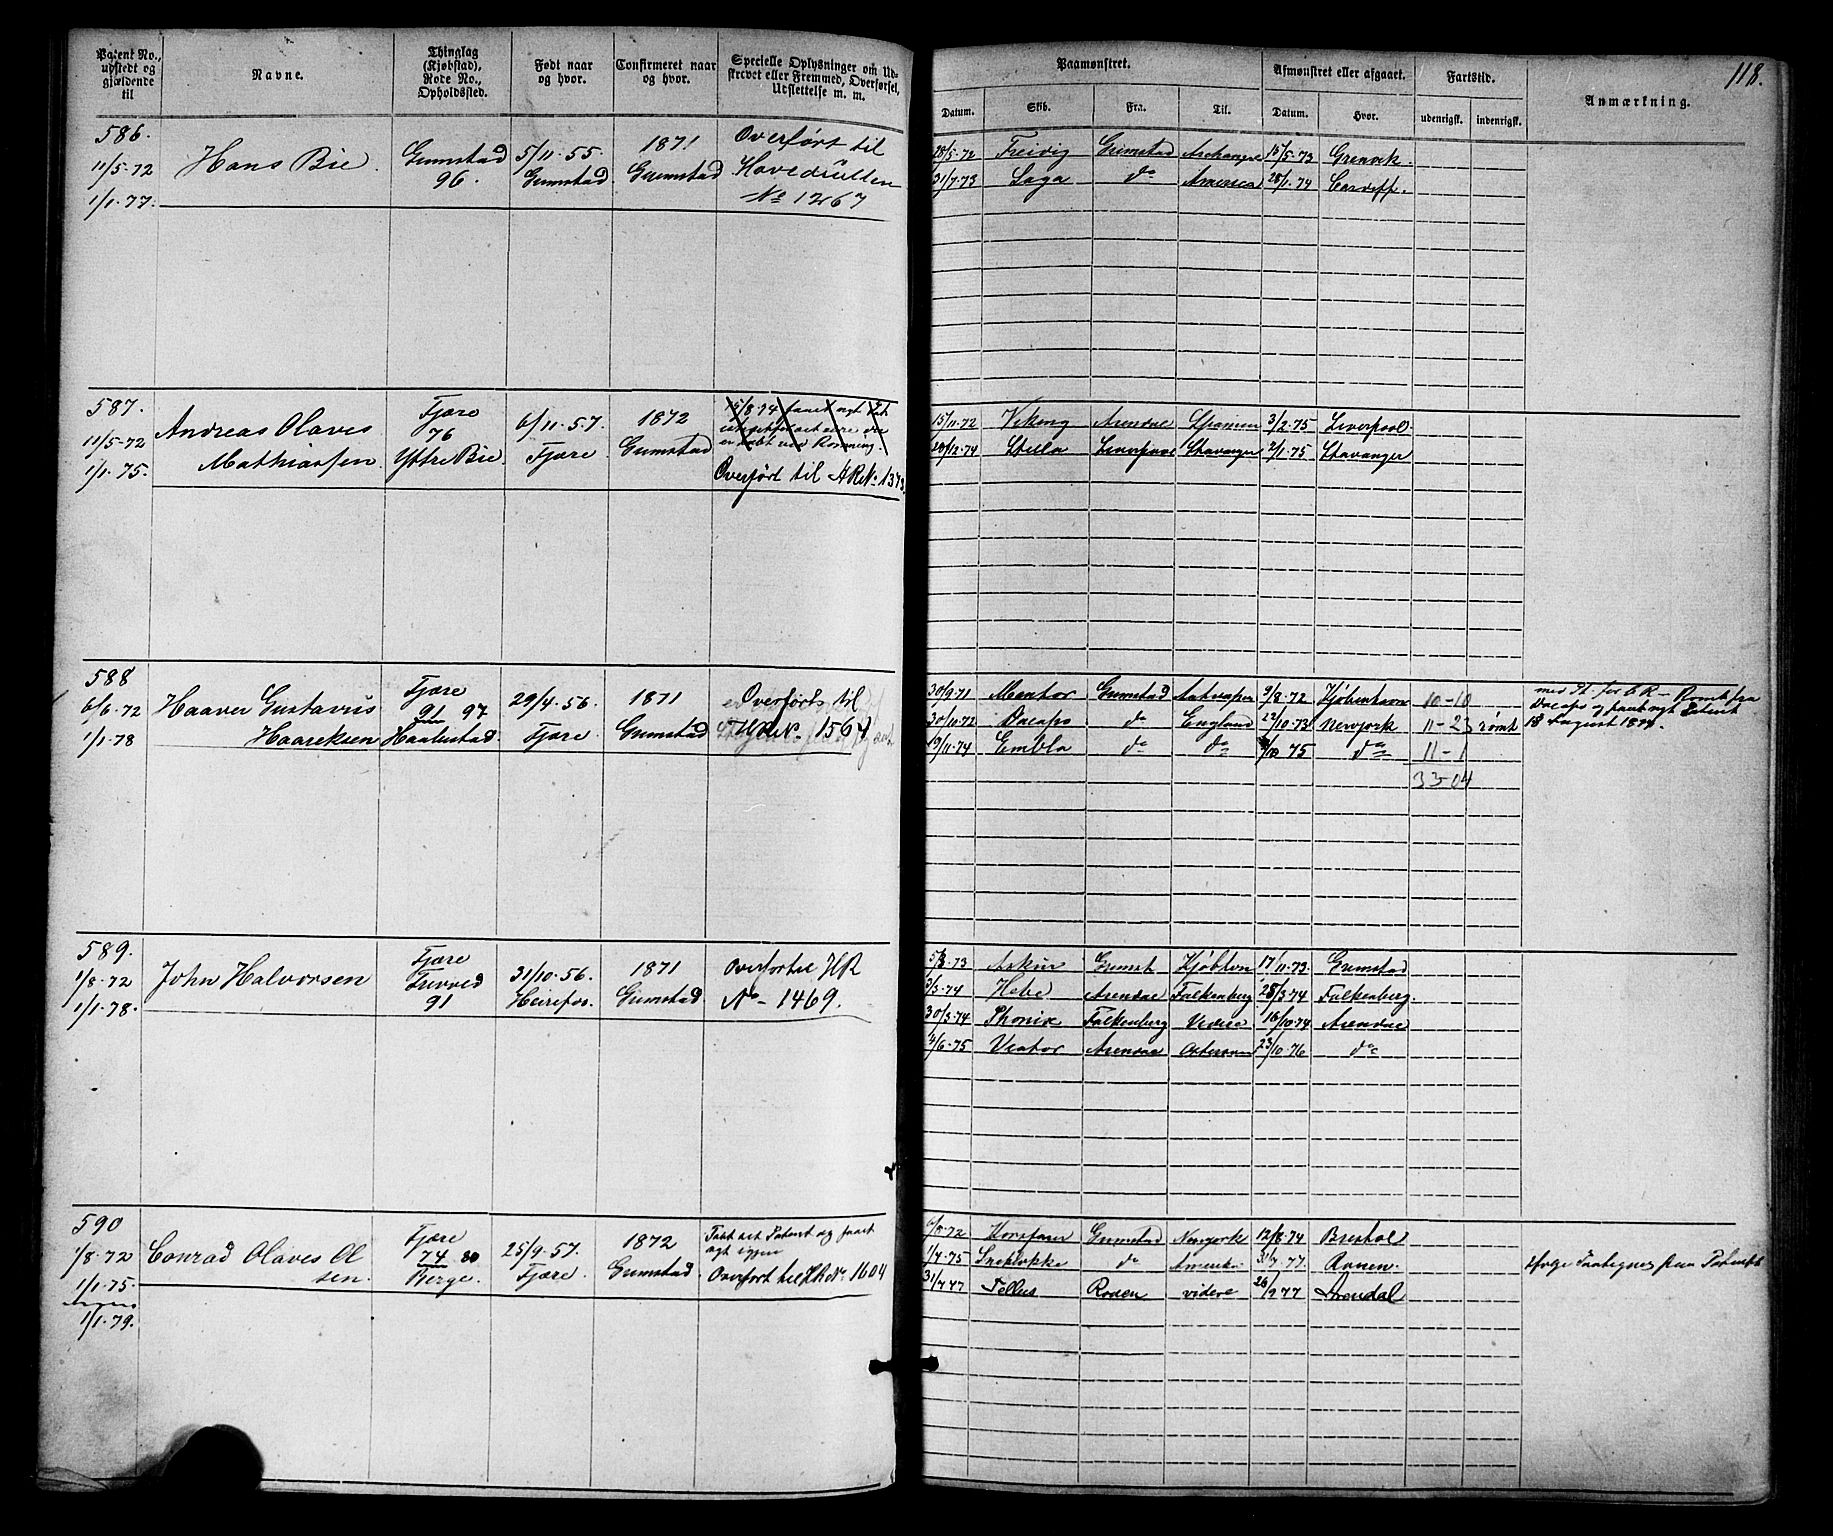 Patent No., udstedt og gjældende til
Navne.
Thinglag (Kjøbstad), Rode No., Opholdssted.
Født naar og hvor.
Confirmeret naar og hvor.
Specielle Oplysninger om Udskrevet eller Fremmed, Overførsel, Udslettelse m. m.
Paamønstret.
Afmønstret eller afgaaet.
Fartstid.
Anmærkning.
118.
Datum.
Skib.
Fra.
Til.
Datum.
Hvor.
udenrigsk.
indenrigsk.
586.
11/5-72
1/1-77.
Hans Bie
Grimstad
96.
5/11-55.
Grimstad
1871
Grimstad
Overført til
Hovedrullen
No 1267
28/5-72 Freidig Grimstad Archangel 15/5-73 Grenvik
31/7-73 Saga do America 28/1-74 Cardiff.
587.
11/5-72
1/1-75.
Andreas Olaves
Mathiassen
Fjære
76
Yttre Bie
6/11-57.
Fjære
1872
Grimstad
Overført til HRNo 1373.
15/11-72 Viking Arendal 3/2-75 Liverpool
29/12-74 Stella Liverpool Stavanger 2/1-75 Stavanger
588
6/6-72
1/1-78
Haaver Gustavus
Haareksen
Fjære
91 97
29/4-56.
Fjære
1871
Grimstad
Overførts til
HRNo 1567
30/9-71 Mentor Grimstad Antverpen 9/8-72 Kjøbenhavn 10-10
30/11-72 do England 22/10-73 Newyork 11-23 rømt
19/11-74 Embla do do 75 do 11-1
33-04
18 August 1874.
589.
1/8-72
1/1-78.
John Halvorsen
Fjære
91
31/10-56.
1871
Grimstad
Overfor til HR
No- 1469.
5/3-73 Askur Grimst Kjøbhvn 17/11-73 Grimstad
3/3-74 Hebe Arendal Falkenberg 28/3-74 Falkenberg.
30/3-74 Phønix Falkenberg Videre 16/10-74 Arendal
4/6-75 Viator Arendal 23/10-76 do
590
1/8-72
1/1-75
1/1-79.
Conrad Olaves Ol
sen.
Fjære
74 80
Bjerge.
25/9-57.
Fjære
1872
Grimstad
Tabt sit Patent og faaet
nyt igjen
Overført til HRNo 1604
6/8-72 Grimstad Newyork 12/8-74 Bristol
1/4-75 Sneklokke do Amerika 77. Rouen.
31/7-77 Tellus Rouen videre 26/9 77 Arendal